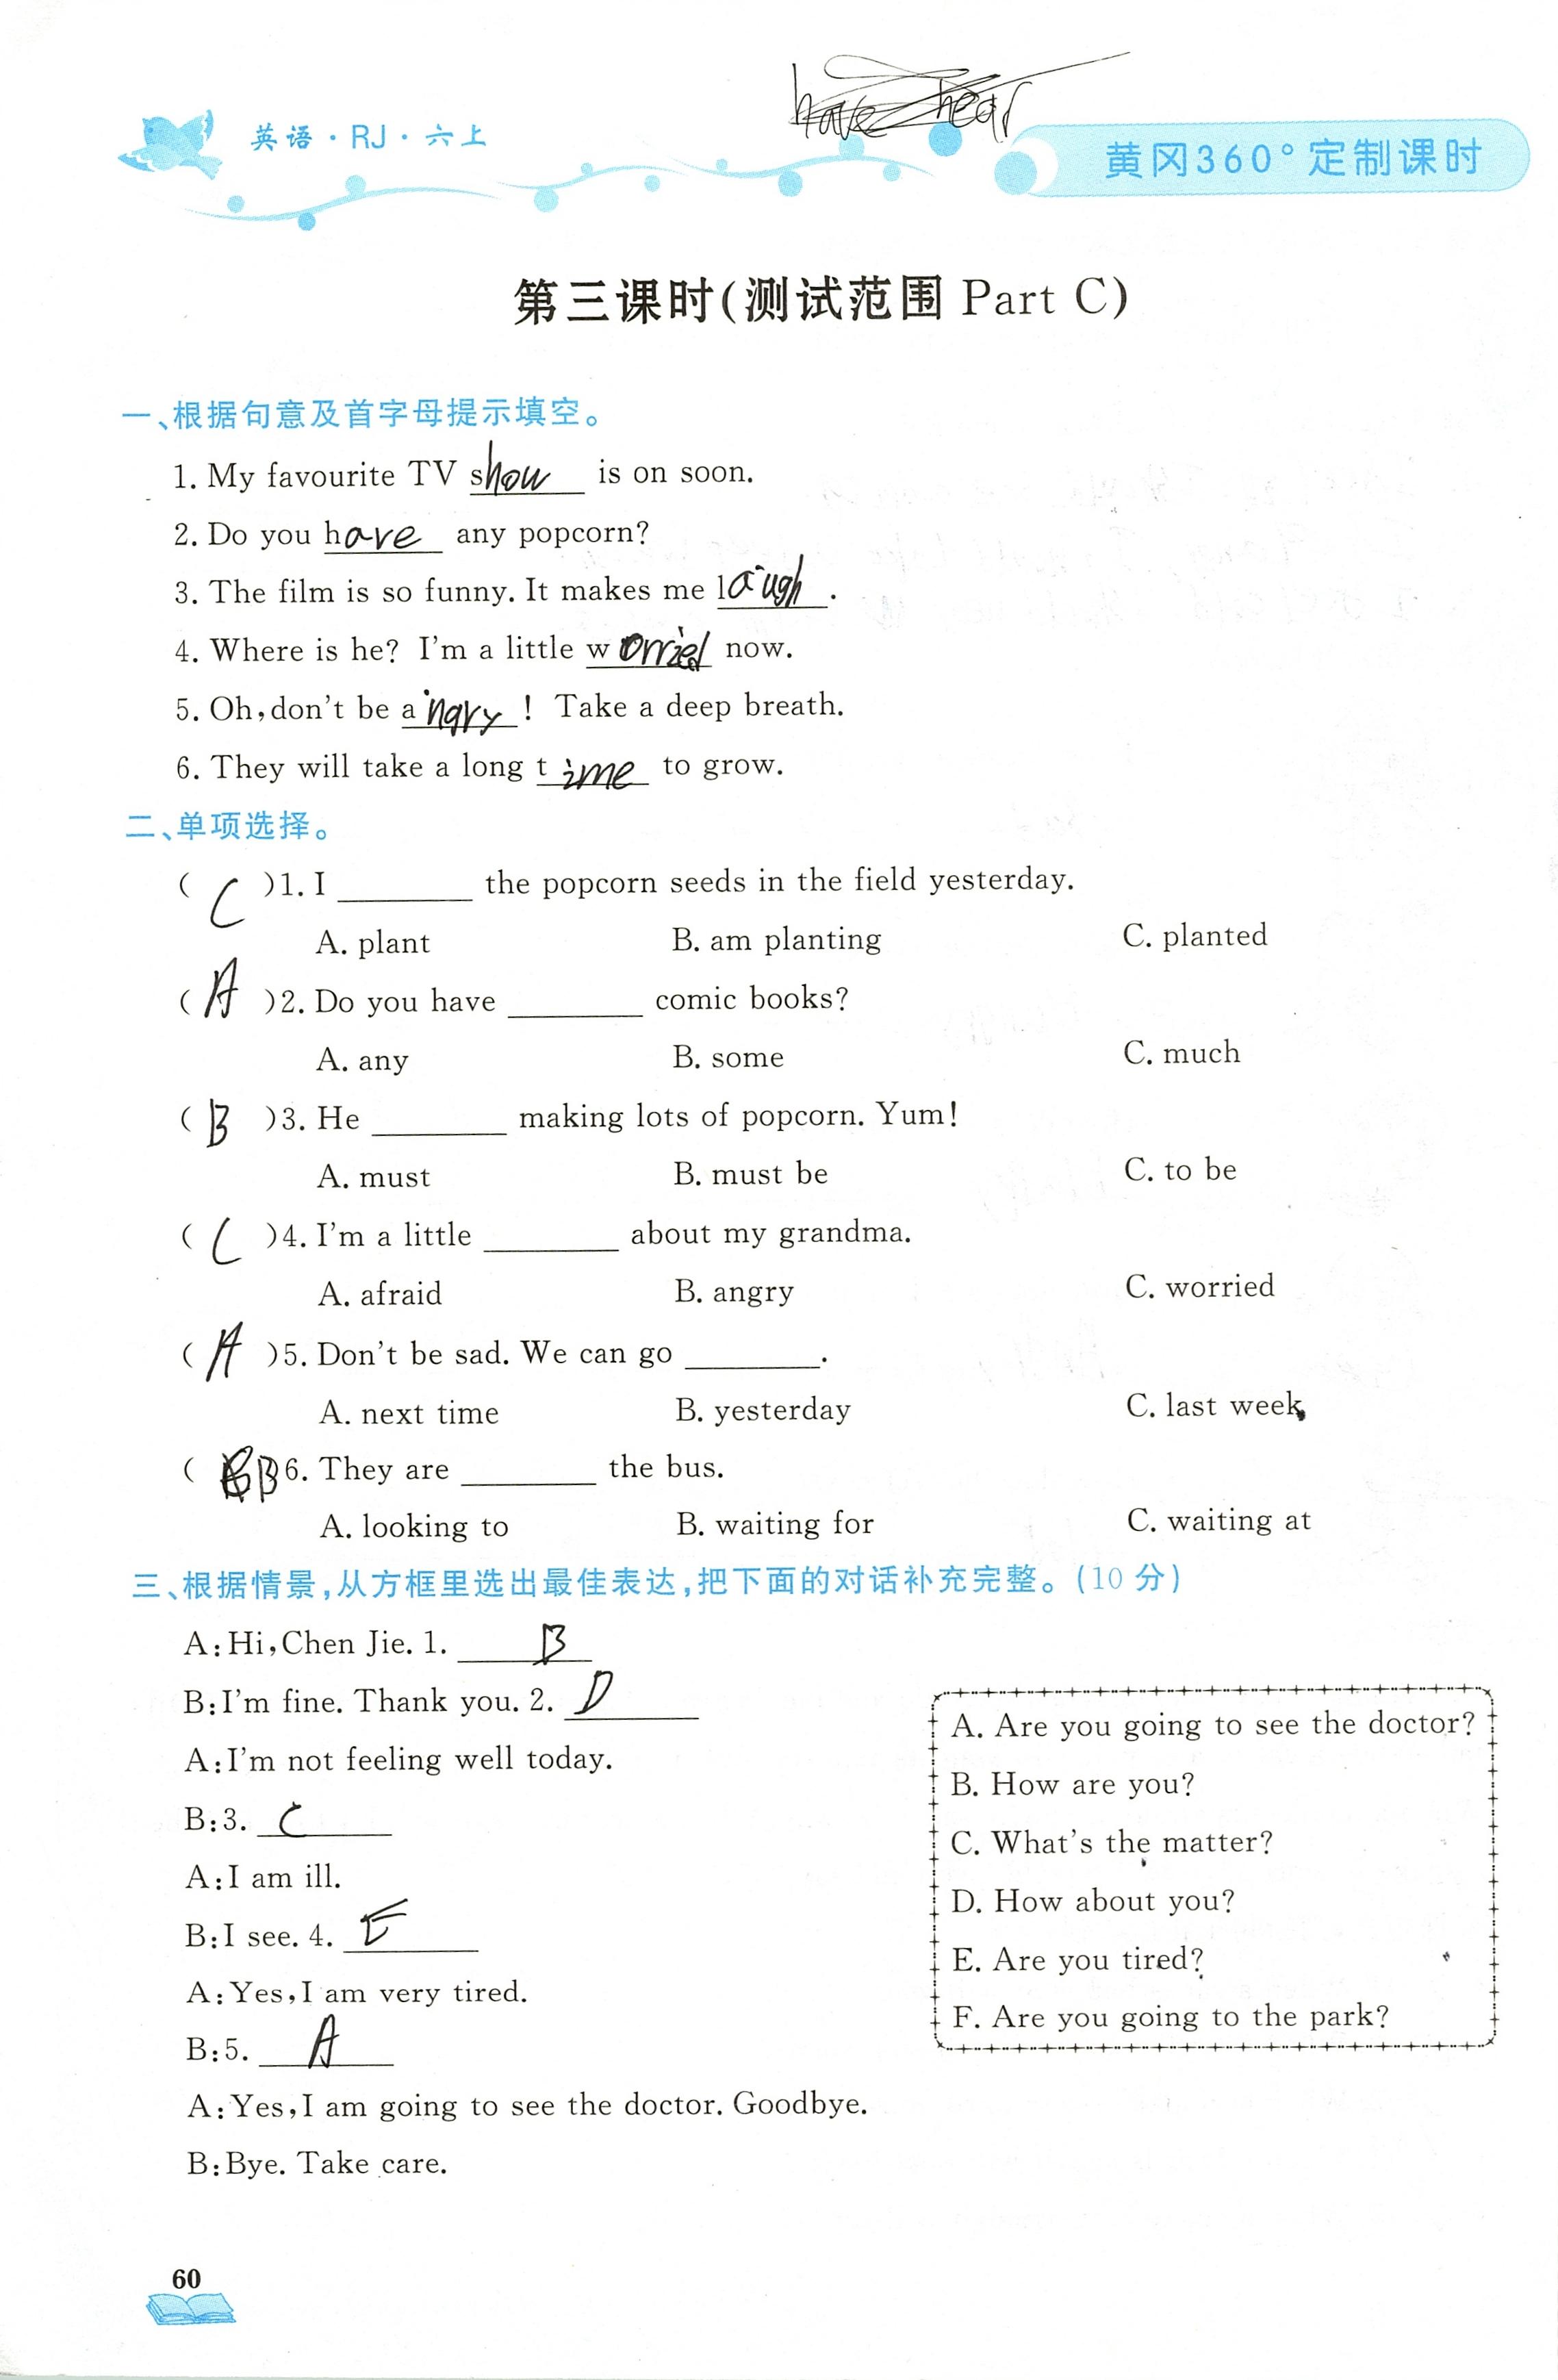 have hear
英语·RJ·六上
黄冈360°定制课时
第三课时(测试范围 Part C)
一、根据句意及首字母提示填空。
1. My favourite TV show is on soon.
2. Do you have any popcorn?
3. The film is so funny. It makes me laugh.
4. Where is he? I'm a little worried now.
5. Oh,don't be angry! Take a deep breath.
6. They will take a long time to grow.
二、单项选择。
( C )1. I ________ the popcorn seeds in the field yesterday.
A. plant B. am planting C. planted
( A )2. Do you have ________ comic books?
A. any B. some C. much
( B )3. He ________ making lots of popcorn. Yum!
A. must B. must be C. to be
( C )4. I'm a little ________ about my grandma.
A. afraid B. angry C. worried
( A )5. Don't be sad. We can go ________.
A. next time B. yesterday C. last week
( B )6. They are ________ the bus.
A. looking to B. waiting for C. waiting at
三、根据情景,从方框里选出最佳表达,把下面的对话补充完整。(10 分)
A:Hi,Chen Jie. 1. B
B:I'm fine. Thank you. 2. D
A:I'm not feeling well today.
B:3. C
A:I am ill.
B:I see. 4. E
A:Yes,I am very tired.
B:5. A
A:Yes,I am going to see the doctor. Goodbye.
B:Bye. Take care.
A. Are you going to see the doctor?
B. How are you?
C. What's the matter?
D. How about you?
E. Are you tired?
F. Are you going to the park?
60